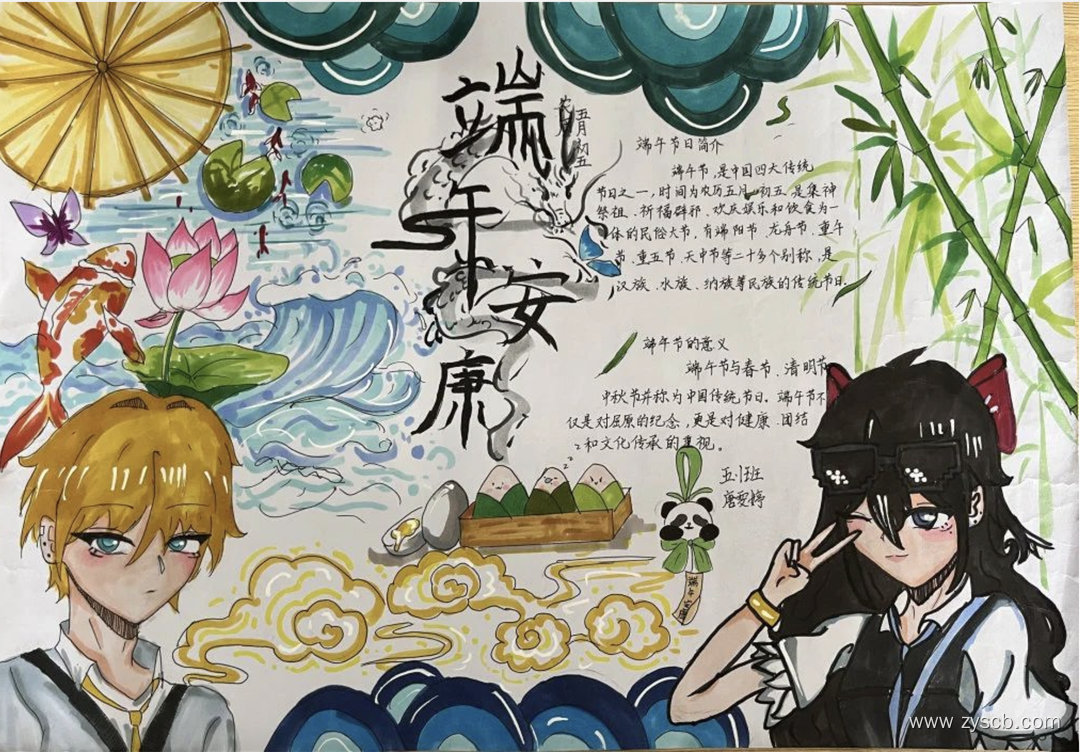 端午安康
农历
五月初五
端午节日简介
端午节,是中国四大传统
节日之一,时间为农历五月初五,是集神
祭祖、祈福辟邪、欢庆娱乐和饮食为一
体的民俗大节,有端阳节、龙舟节、重午
节、重五节、天中节等二十多个别称,是
汉族、水族、纳族等民族的传统节日。
端午节的意义
端午节与春节、清明节
中秋节并称为中国传统节日。端午节不
仅是对屈原的纪念,更是对健康、团结
和文化传承的重视。
端午安康
www.zyscb.com